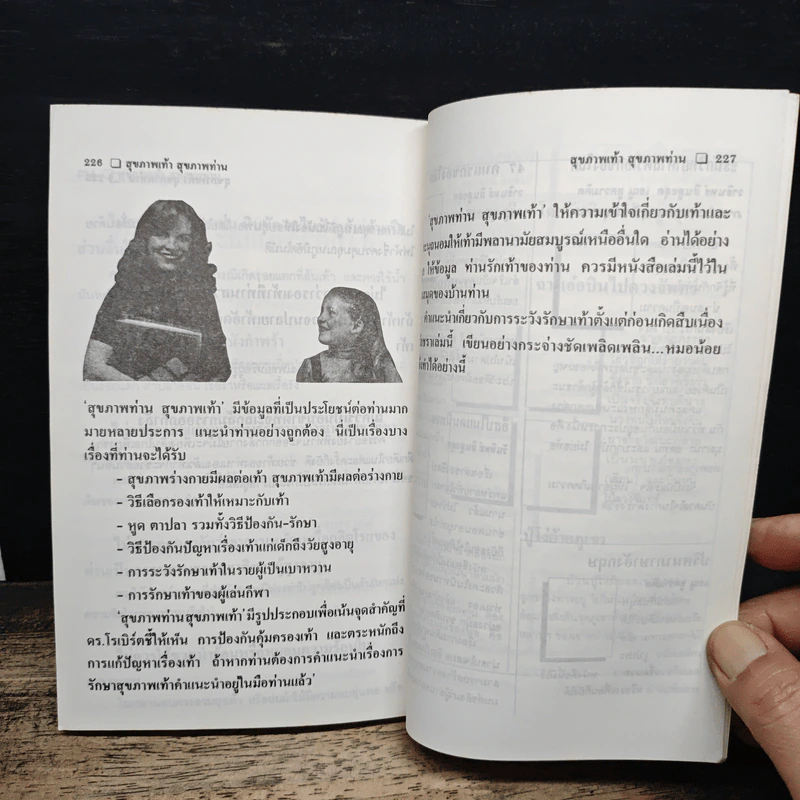 226 ❏ สุขภาพเท้า สุขภาพท่าน
'สุขภาพท่าน สุขภาพเท้า' มีข้อมูลที่เป็นประโยชน์ต่อท่านมาก
มายหลายประการ แนะนำท่านอย่างถูกต้อง นี่เป็นเรื่องบาง
เรื่องที่ท่านจะได้รับ
- สุขภาพร่างกายมีผลต่อเท้า สุขภาพเท้ามีผลต่อร่างกาย
- วิธีเลือกรองเท้าให้เหมาะกับเท้า
- หูด ตาปลา รวมทั้งวิธีป้องกัน-รักษา
- วิธีป้องกันปัญหาเรื่องเท้าแก่เด็กถึงวัยสูงอายุ
- การระวังรักษาเท้าในรายผู้เป็นเบาหวาน
- การรักษาเท้าของผู้เล่นกีฬา
'สุขภาพท่านสุขภาพเท้า' มีรูปประกอบเพื่อเน้นจุดสำคัญที่
ดร.โรเบิร์ตชี้ให้เห็น การป้องกันคุ้มครองเท้า และตระหนักถึง
การแก้ปัญหาเรื่องเท้า ถ้าหากท่านต้องการคำแนะนำเรื่องการ
รักษาสุขภาพเท้าคำแนะนำอยู่ในมือท่านแล้ว'
สุขภาพเท้า สุขภาพท่าน ❏ 227
'สุขภาพท่าน สุขภาพเท้า' ให้ความเข้าใจเกี่ยวกับเท้าและ
ถนอมให้เท้ามีพลานามัยสมบูรณ์เหนืออื่นใด อ่านได้อย่าง
ให้ข้อมูล ท่านรักเท้าของท่าน ควรมีหนังสือเล่มนี้ไว้ใน
สมุดของบ้านท่าน
คำแนะนำเกี่ยวกับการระวังรักษาเท้าตั้งแต่ก่อนเกิดสืบเนื่อง
เล่มนี้ เขียนอย่างกระจ่างชัดเพลิดเพลิน...หมอน้อย
ทำได้อย่างนี้